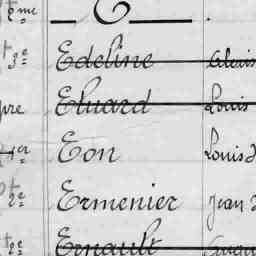 2me E
2e Edeline Alexis
pre Eluard Louis
1er Eon Louis
2e Ermenier Jean
2e Ernault